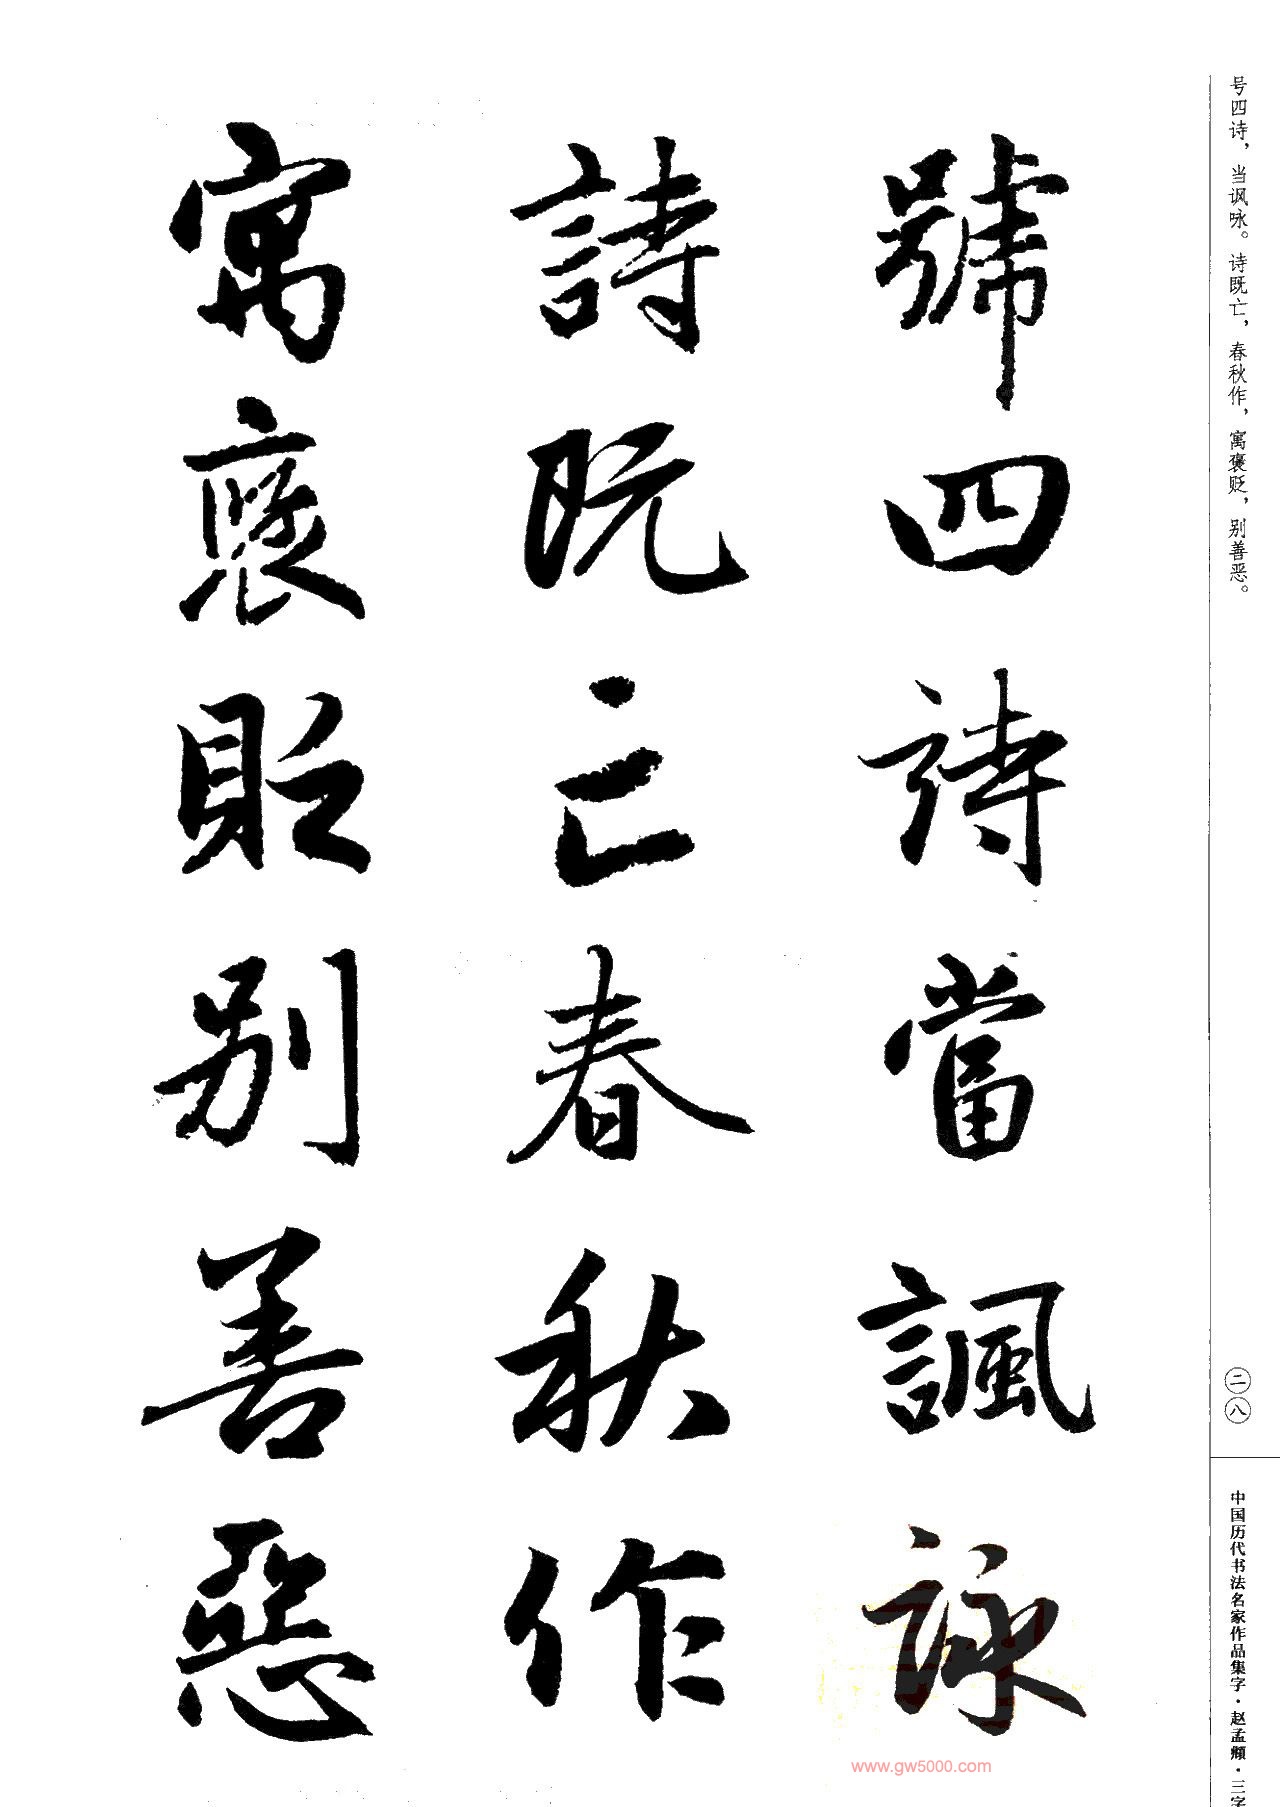 號四詩當諷詠
詩既亡春秋作
寓褒貶别善惡
号四诗，当讽咏。诗既亡，春秋作，寓褒贬，别善恶。
二八
中国历代书法名家作品集字·赵孟頫·三字
www.gw5000.com